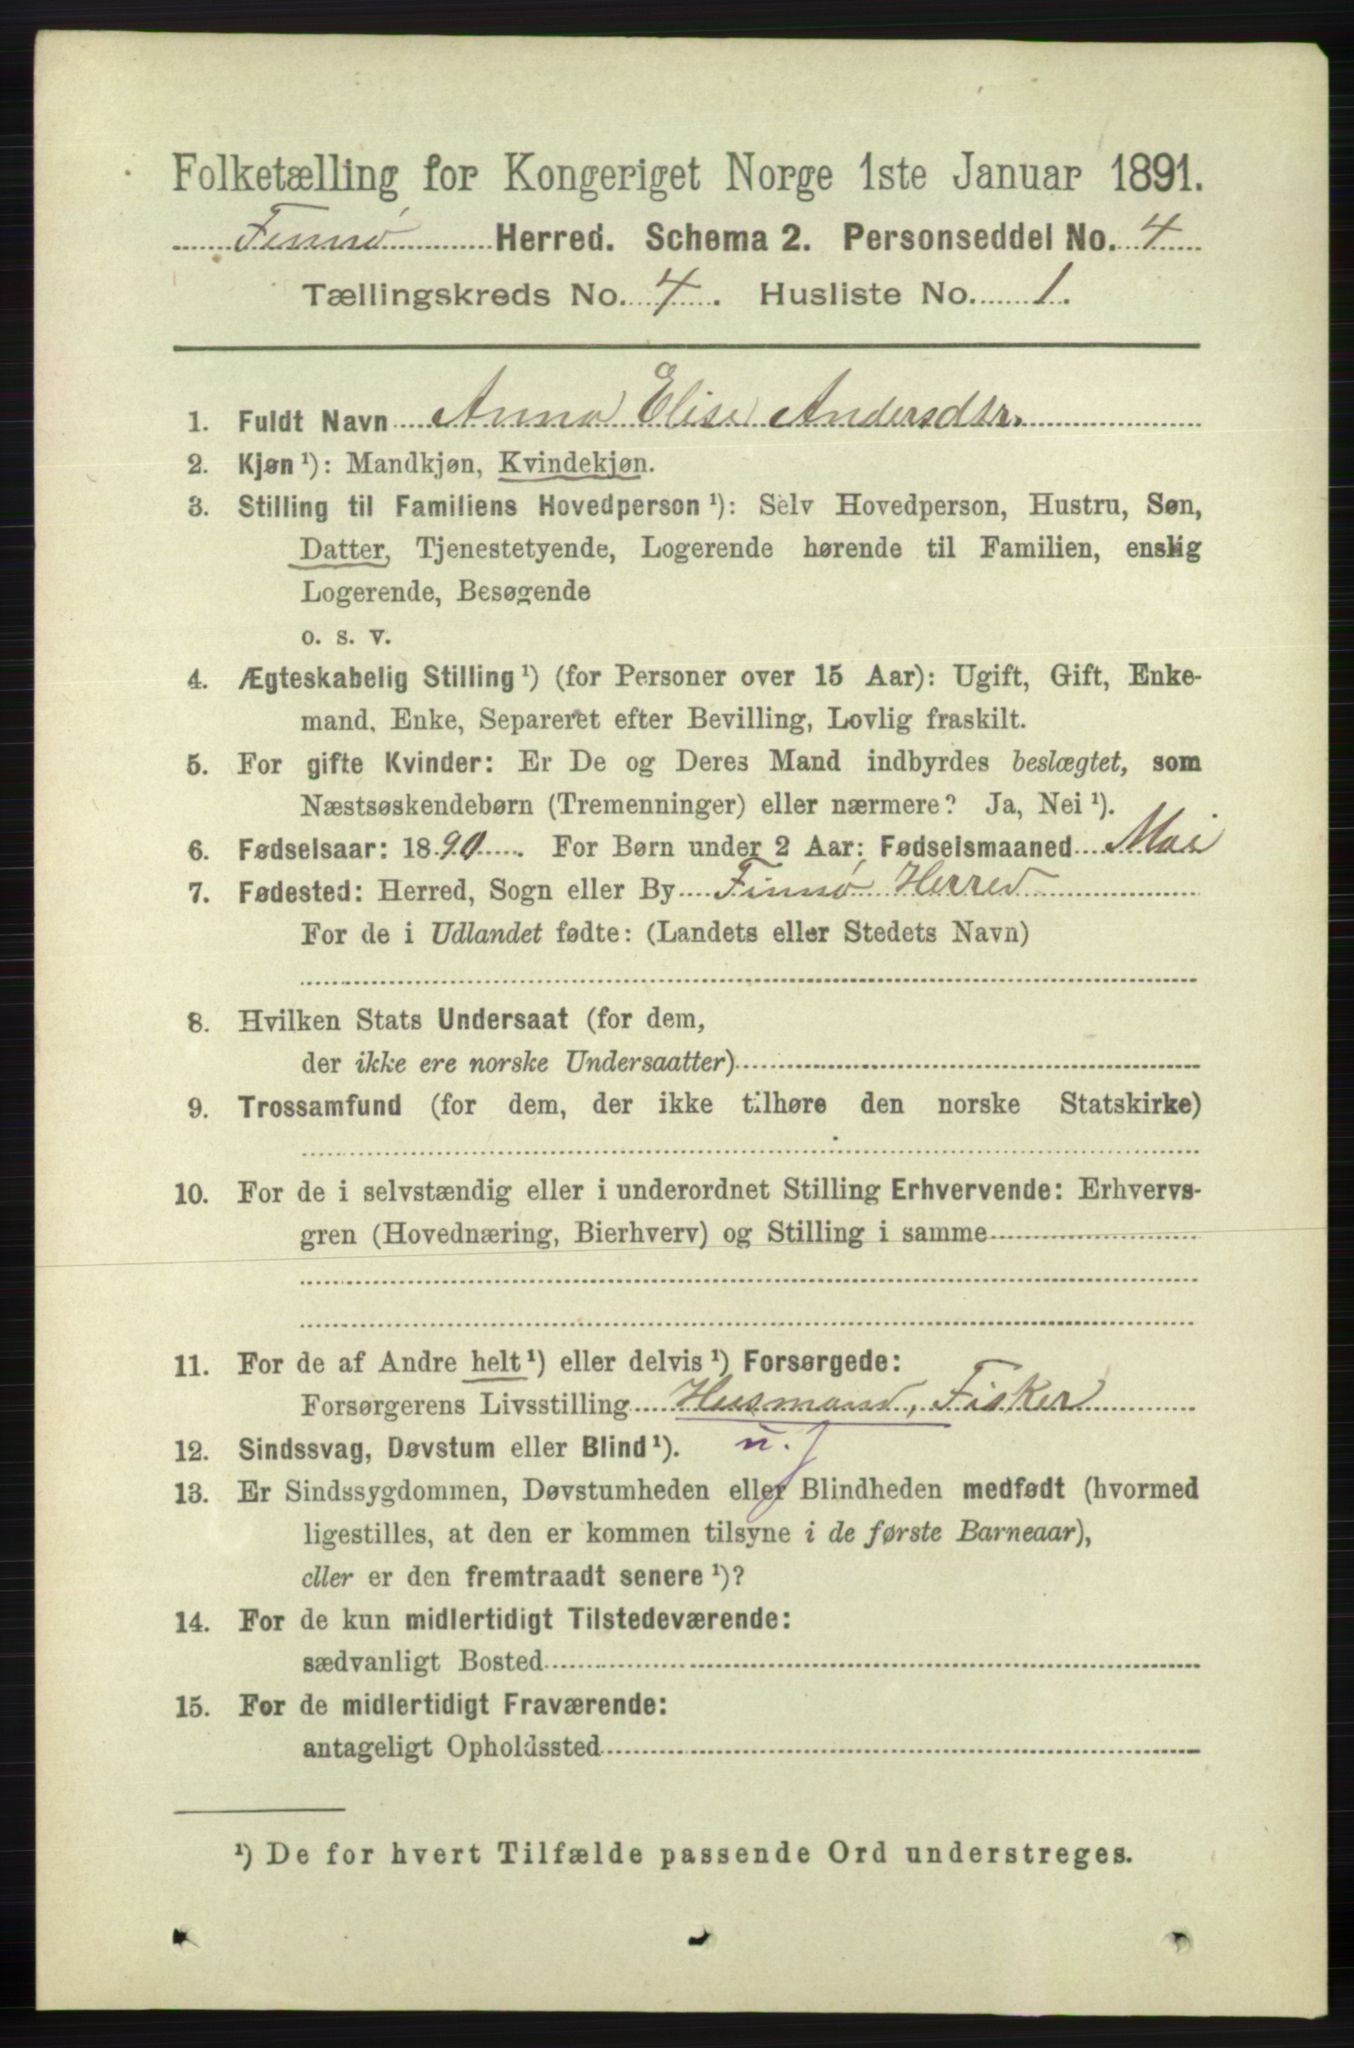 Folketælling for Kongeriget Norge 1ste Januar 1891.
Finnø Herred. Schema 2. Personseddel No. 4
Tællingskreds No. 4. Husliste No. 1.
1. Fuldt Navn Anna Elise Andersdtr.
2. Kjøn ¹): Mandkjøn, Kvindekjøn.
3. Stilling til Familiens Hovedperson ¹): Selv Hovedperson, Hustru, Søn,
Datter, Tjenestetyende, Logerende hørende til Familien, enslig
Logerende, Besøgende
o. s. v.
4. Ægteskabelig Stilling ¹) (for Personer over 15 Aar): Ugift, Gift, Enke-
mand, Enke, Separeret efter Bevilling, Lovlig fraskilt.
5. For gifte Kvinder: Er De og Deres Mand indbyrdes beslægtet, som
Næstsøskendebørn (Tremenninger) eller nærmere? Ja, Nei ¹).
6. Fødselsaar: 1890. For Børn under 2 Aar: Fødselsmaaned Mai
7. Fødested: Herred, Sogn eller By Finnø Herred
For de i Udlandet fødte: (Landets eller Stedets Navn)
8. Hvilken Stats Undersaat (for dem,
der ikke ere norske Undersaatter)
9. Trossamfund (for dem, der ikke tilhøre den norske Statskirke)
10. For de i selvstændig eller i underordnet Stilling Erhvervende: Erhvervs-
gren (Hovednæring, Bierhverv) og Stilling i samme
11. For de af Andre helt ¹) eller delvis ¹) Forsørgede:
Forsørgerens Livsstilling Husmand, Fisker
12. Sindssvag, Døvstum eller Blind ¹). u. j
13. Er Sindssygdommen, Døvstumheden eller Blindheden medfødt (hvormed
ligestilles, at den er kommen tilsyne i de første Barneaar),
eller er den fremtraadt senere ¹)?
14. For de kun midlertidigt Tilstedeværende:
sædvanligt Bosted
15. For de midlertidigt Fraværende:
antageligt Opholdssted
¹) De for hvert Tilfælde passende Ord understreges.